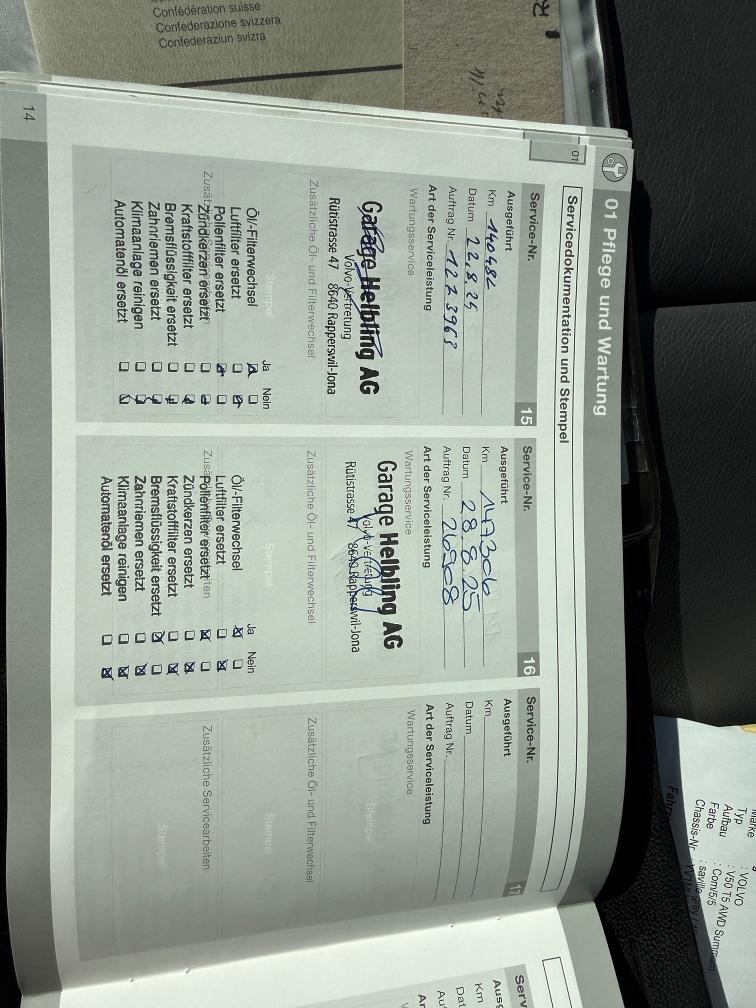 Confédération suisse
Confederazione svizzera
Confederaziun svizra
14
01 Pflege und Wartung
01
Servicedokumentation und Stempel
Service-Nr. 15
Ausgeführt
Km 140482
Datum 22.8.24
Auftrag Nr. 1223963
Art der Serviceleistung
Wartungsservice
Garage Helbling AG
Volvo-Vertretung
Rütistrasse 47 8640 Rapperswil-Jona
Zusätzliche Öl- und Filterwechsel
Stempel
Ja Nein
Öl/-Filterwechsel
Luftfilter ersetzt
Pollenfilter ersetzt
Zündkerzen ersetzt
Kraftstofffilter ersetzt
Bremsflüssigkeit ersetzt
Zahnriemen ersetzt
Klimaanlage reinigen
Automatenöl ersetzt
Service-Nr. 16
Ausgeführt
Km 147306
Datum 28.8.25
Auftrag Nr. 26908
Art der Serviceleistung
Wartungsservice
Garage Helbling AG
Volvo-Vertretung
Rütistrasse 47 8640 Rapperswil-Jona
Zusätzliche Öl- und Filterwechsel
Stempel
Ja Nein
Öl/-Filterwechsel
Luftfilter ersetzt
Pollenfilter ersetzt
Zündkerzen ersetzt
Kraftstofffilter ersetzt
Bremsflüssigkeit ersetzt
Zahnriemen ersetzt
Klimaanlage reinigen
Automatenöl ersetzt
Service-Nr. 17
Ausgeführt
Km
Datum
Auftrag Nr.
Art der Serviceleistung
Wartungsservice
Stempel
Zusätzliche Öl- und Filterwechsel
Stempel
Zusätzliche Servicearbeiten
Stempel
Serv
Ausg
Km
Dat
Au
Ar
Marke : VOLVO
Typ : V50 T5 AWD Summum
Aufbau : Com/5/5
Farbe : saville grey
Chassis-Nr.
Fahr